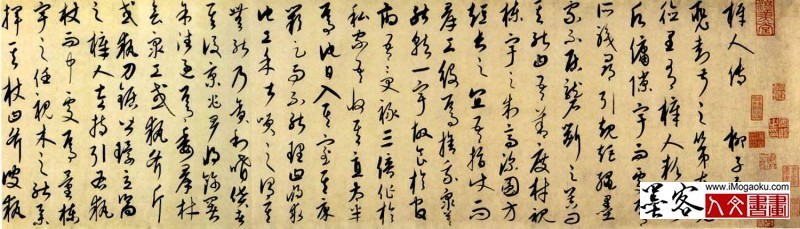 梓人傳 柳子
裴封叔之第在光
德里有梓人款
願傭隙宇而處
所職尋引規矩繩墨
家不居礱斲之器問
其能曰吾善度材視
棟宇之制高深圓方
短長之宜吾指使而
群工役焉捨我眾莫
能就一宇故食於官
府吾受祿三倍作於
私家吾收其直太半
焉他日入其室其床
闕足而不能理曰將求
他工余甚笑之謂其
無能乃貪利嗜貨者
其後京兆尹將飾官署
余往過焉委群材
會眾工或執斧斤
或執刀鋸皆環立嚮
之梓人左持引右執
杖而中處焉量棟
宇之任視木之能舉
揮其杖曰斧彼執
墨客
www.iMogaoku.com
人文書畫